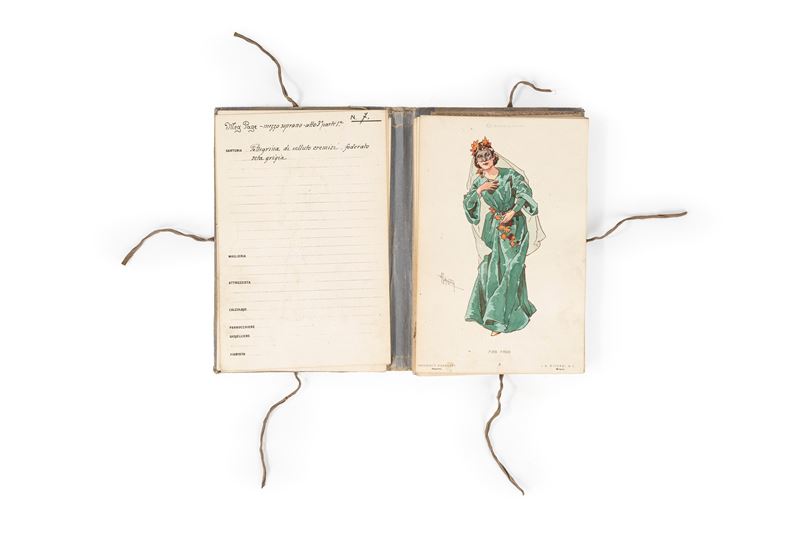 N. 7.
Meg Page - mezzo soprano - atto 3° parte 1ª
SARTORIA Pellegrina di velluto cremisi foderato
seta grigia
MAGLIERIA
ATTREZZISTA
CALZOLAIO
PARRUCCHIERE
GIOIELLIERE
FIORISTA
MEG PAGE
G. RICORDI & C.